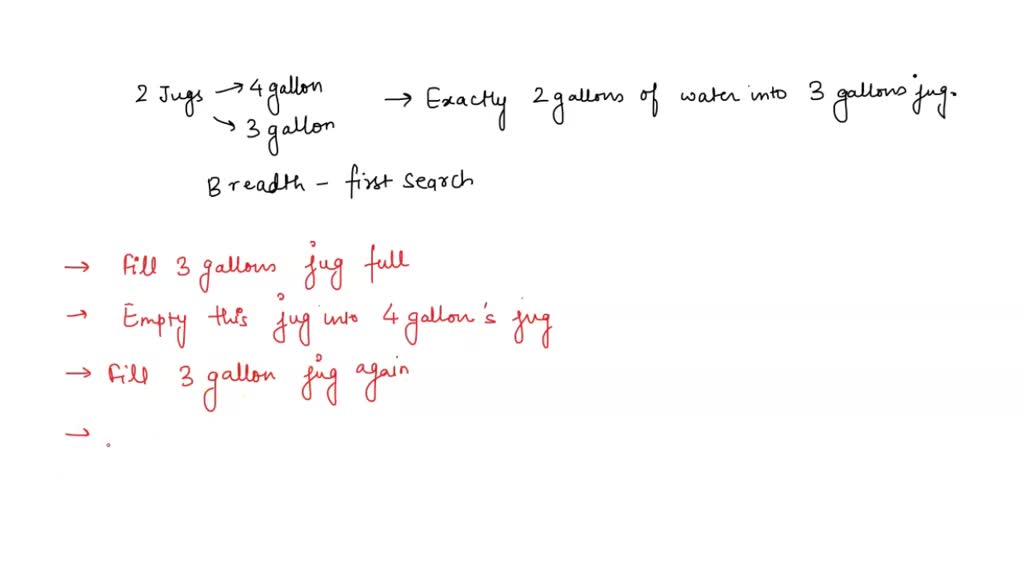 2 Jugs → 4 gallon → Exactly 2 gallons of water into 3 gallons jug.
↘ 3 gallon
Breadth - first search
→ fill 3 gallons jug full
→ Empty this jug into 4 gallon's jug
→ fill 3 gallon jug again
→ .